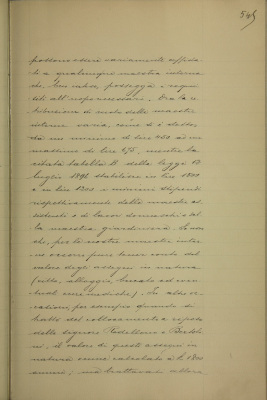 545
possono essere variamente affida-
te a qualunque maestra interna
che non abbia posseggà i requi-
siti all'uopo necessari. Ora la re-
tribuzione di ruolo delle maestre
interne varia, come si è detto,
da un minimo di lire 450 ad un
massimo di lire 675, mentre la
tabella B della legge 12
luglio 1896 stabilisce in lire 1800
e in lire 1200 i minimi stipendi
rispettivamente della maestra as-
sistente e di lavori domestici e del-
la maestra giardiniera. Come
che, per le nostre maestre inter-
ne occorre pure tener conto del
valore degli assegni in natura
(vitto, alloggio, bucato ed even-
tuali cure mediche). In altre oc-
casioni, per esempio quando si
trattò del collocamento a riposo
delle signore e Bertoli-
ni, il valore di questi assegni in
natura venne calcolato a L. 1800
annue; ma trattavasi allora